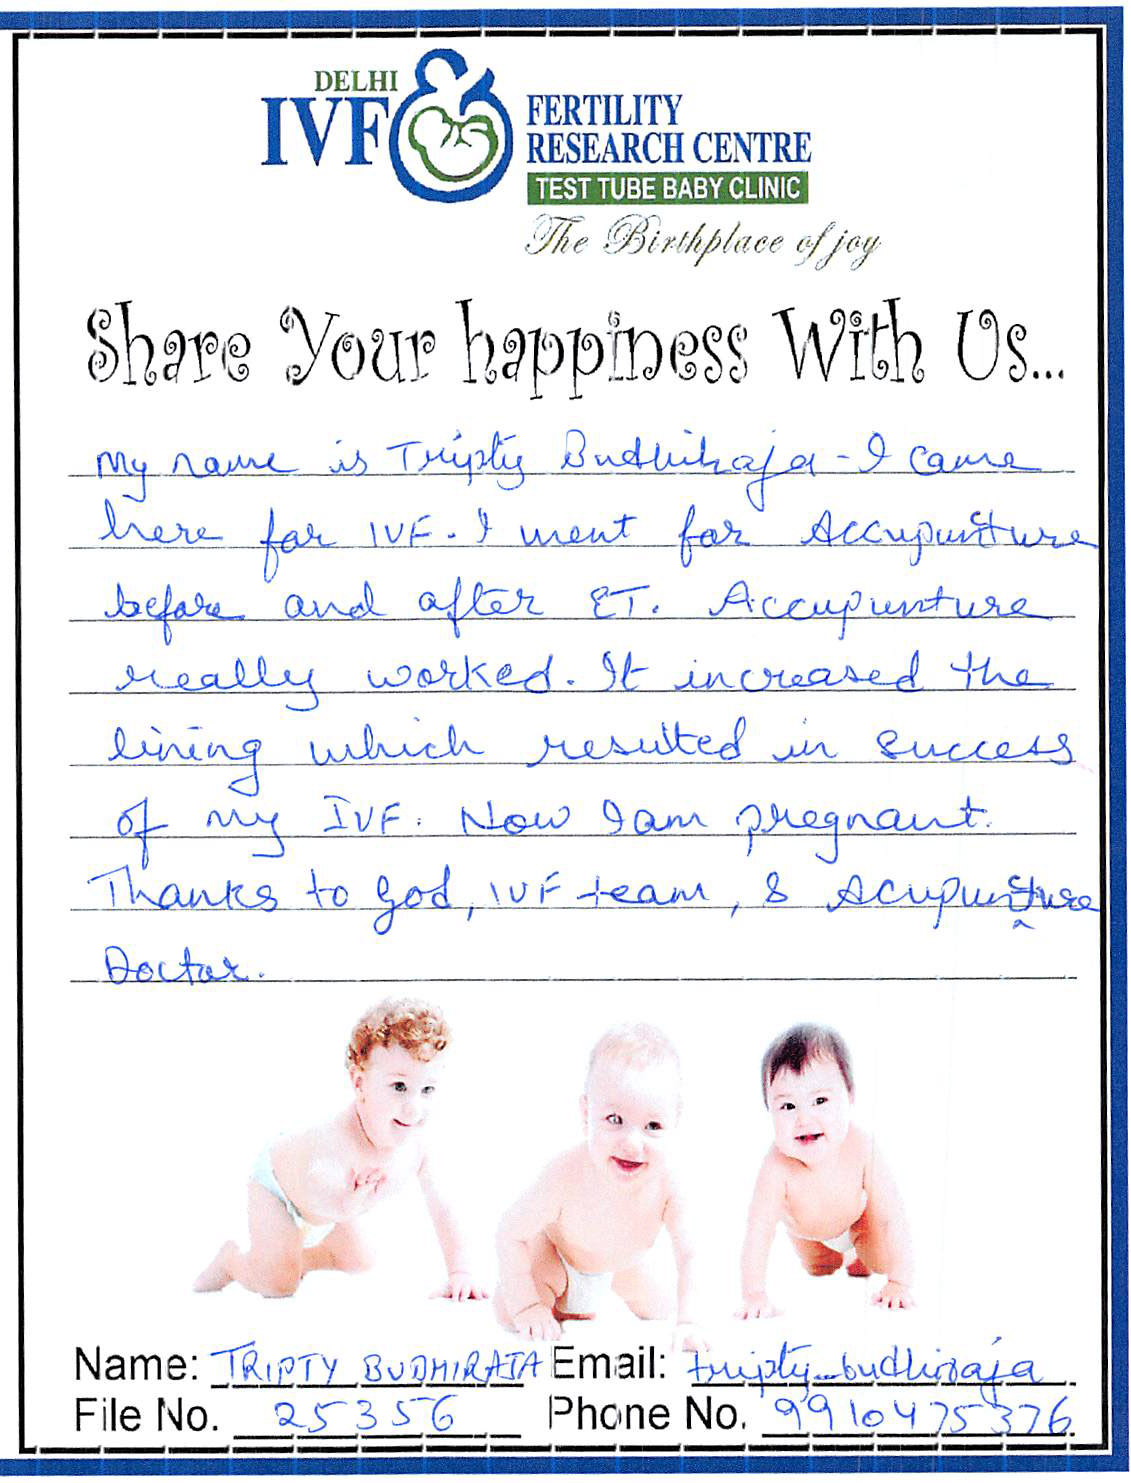 DELHI
IVF
FERTILITY
RESEARCH CENTRE
TEST TUBE BABY CLINIC
The Birthplace of joy
Share Your happiness With Us...
My name is Tripty Budhiraja - I came
here for IVF. I went for Accupuncture
before and after ET. Accupunture
really worked. It increased the
lining which resulted in success
of my IVF. Now I am pregnant.
Thanks to God, IVF team, & Acupuncture
Doctor.
Name: TRIPTY BUDHIRAJA Email: tripty_budhiraja
File No. 25356 Phone No. 9910475376